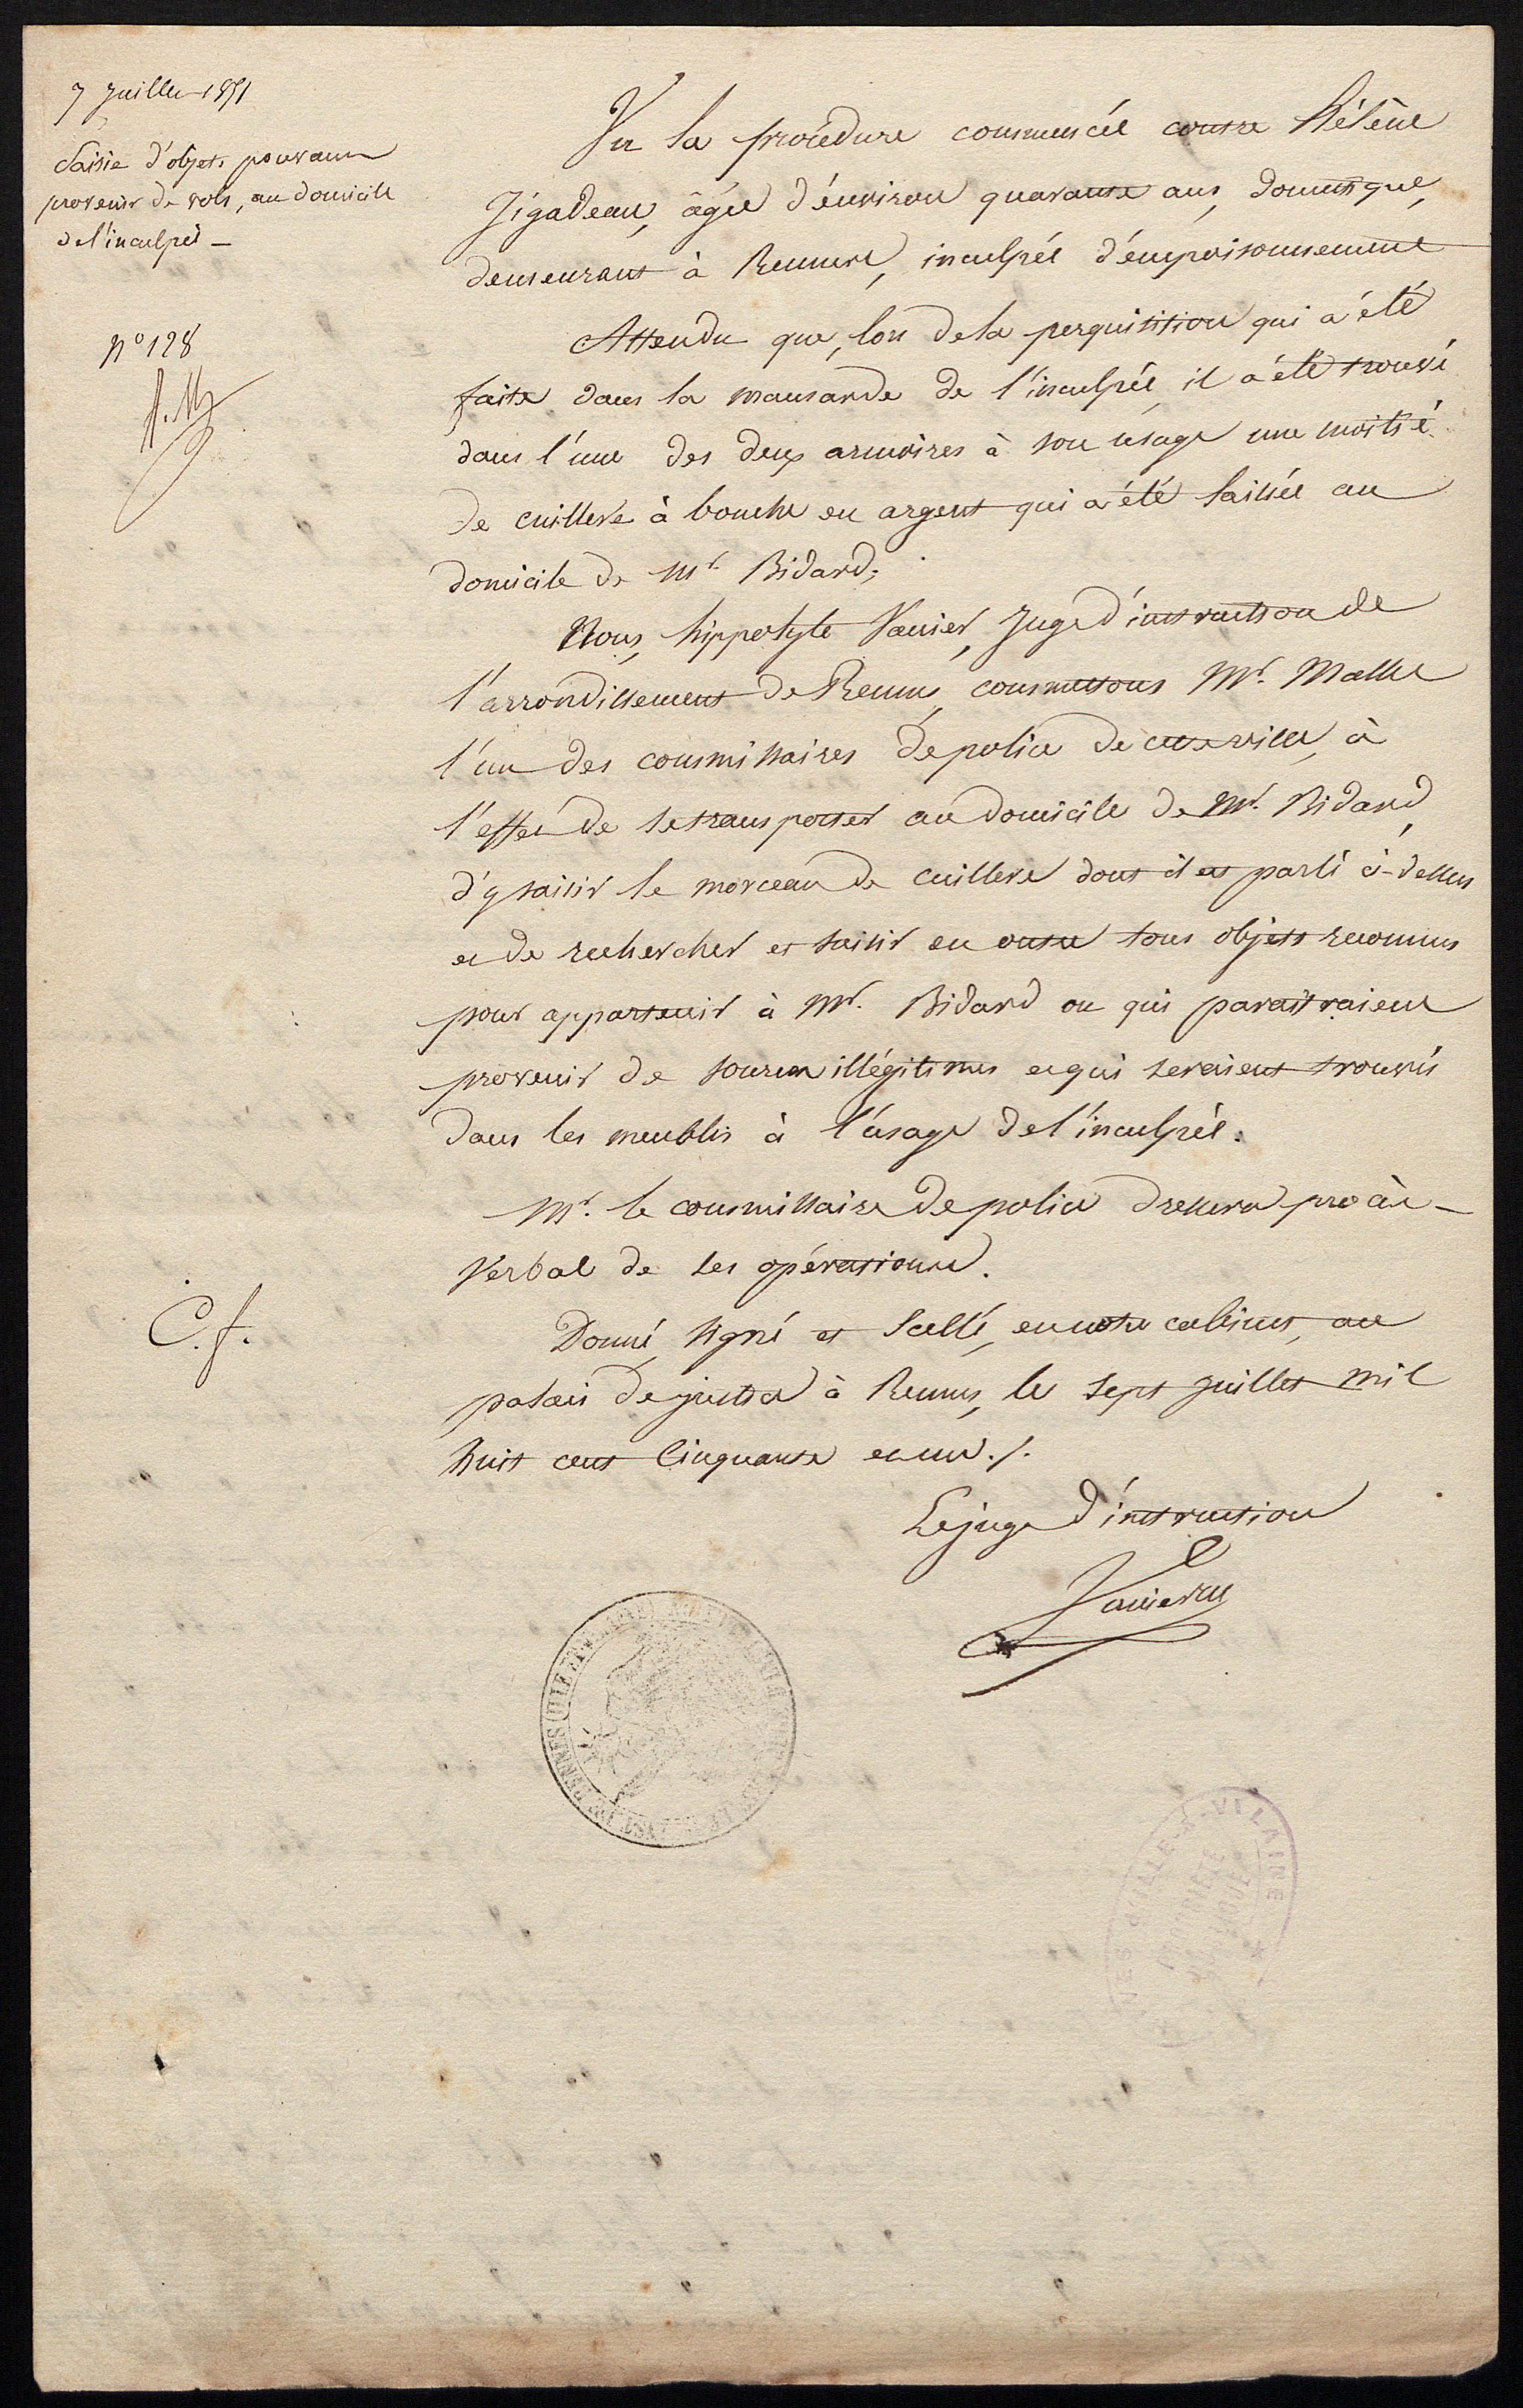 7 Juillet 1851
Saisie d'objets pouvant
provenir de vols, au domicile
de l'inculpée —
N° 128
Vu la procédure commencée contre Hélène
Jégadeau, âgée d'environ quarante ans, domestique,
demeurant à Rennes, inculpée d'empoisonnement
Attendu que, lors de la perquisition qui a été
faite dans la mansarde de l'inculpée, il a été trouvé
dans l'une des deux armoires à son usage une moitié
de cuillere à bouche en argent qui a été laissée au
domicile de Mr Bidard;
Nous, hippolyte Vanier, Juge d'instruction de
l'arrondissement de Rennes, commettons Mr.
l'un des commissaires de police de cette ville, à
l'effet de se transporter au domicile de Mr. Bidard,
d'y saisir le morceau de cuillere dont il est parlé ci-dessus
et de rechercher et saisir en outre tous objets reconnus
pour appartenir à Mr. Bidard ou qui paraitraient
provenir de sources illégitimes et qui seraient trouvés
dans les meubles à l'usage de l'inculpée.
Mr. le commissaire de police dressera procès-
verbal de ses opérations.
C. f.
Donné, signé et scellé, en notre cabinet, au
palais de justice à Rennes, le sept juillet mil
huit cent cinquante et un ./.
Le juge d'instruction
Vanier
RENNES (ILLE ET VILAINE)
ILLE-&-VILAINE
PROPRIÉTÉ
PUBLIQUE